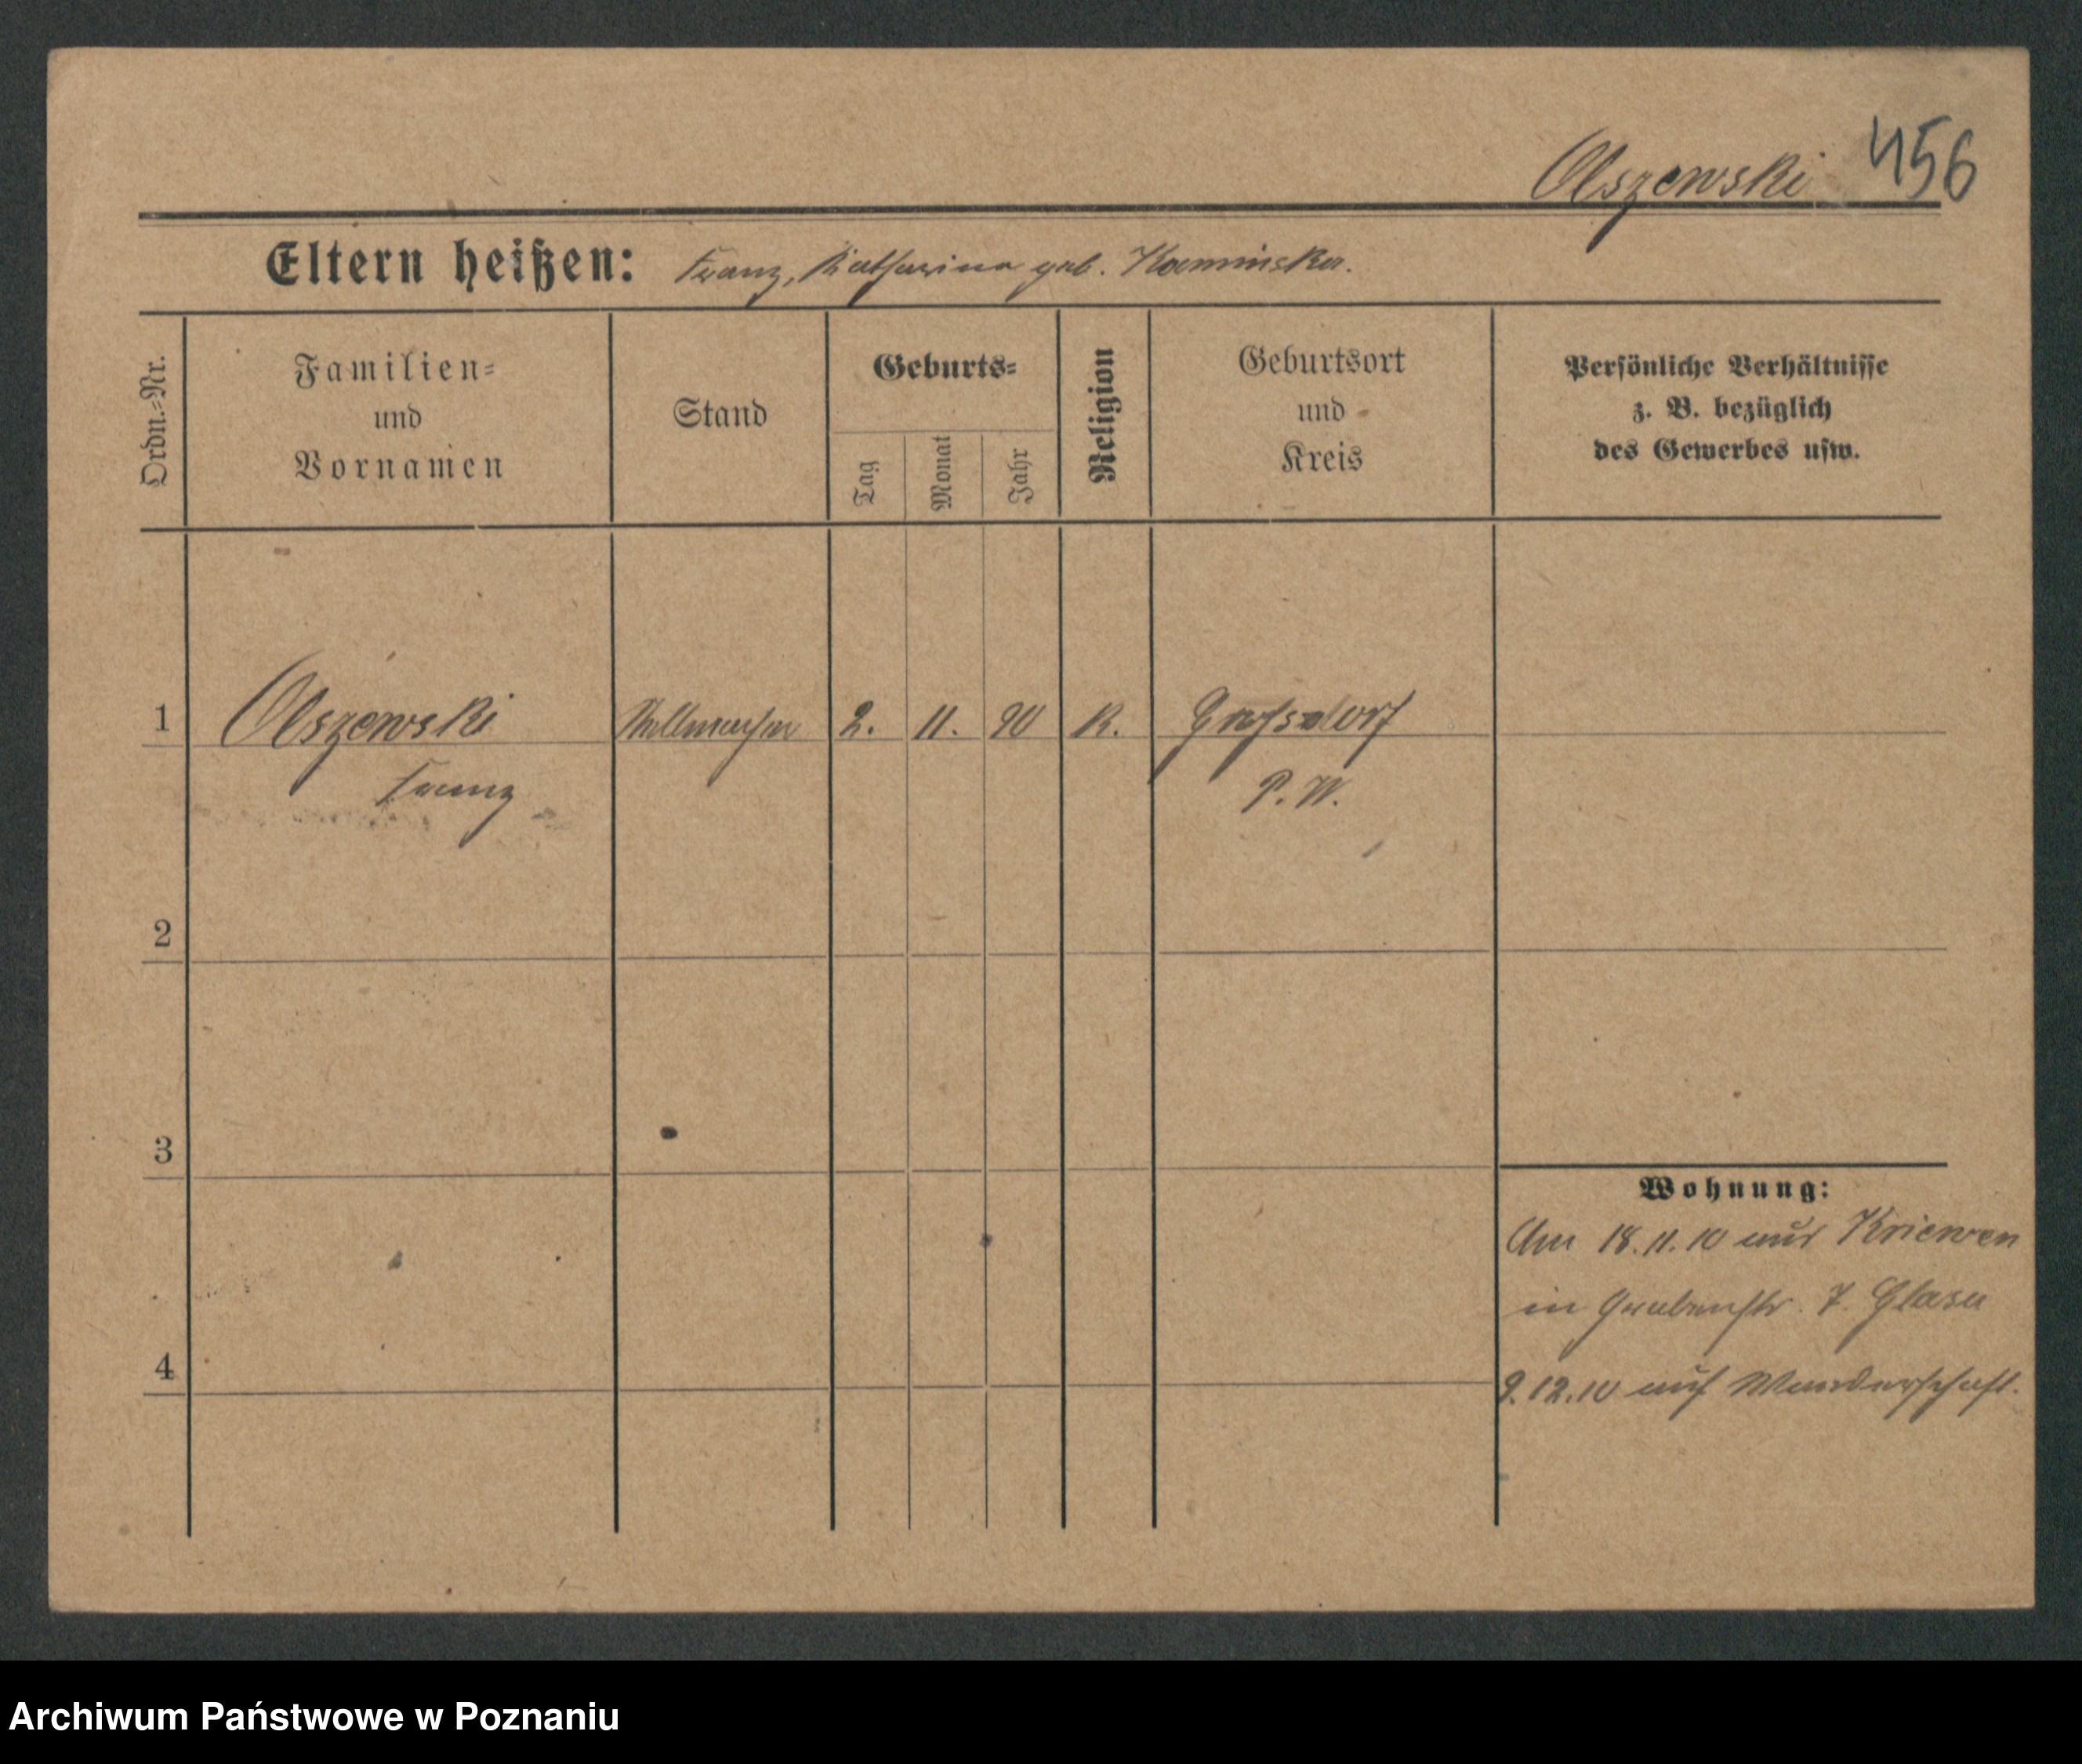 Olszewski 456
Eltern heißen: Franz, Katharina geb. Kaminska.
Ordn.=Nr.
Familien=
und
Vornamen
Stand
Geburts=
Tag
Monat
Jahr
Religion
Geburtsort
und
Kreis
Persönliche Verhältnisse
z. B. bezüglich
des Gewerbes usw.
1 Olszewski Stellmacher 2. 11. 90 K. Grossdorf
Franz P. W.
2
3
Wohnung:
Am 18.11.10 aus Kriewen
in Grabenstr. 7. Glasa
4
9.12.10 auf Wanderschaft.
Archiwum Państwowe w Poznaniu